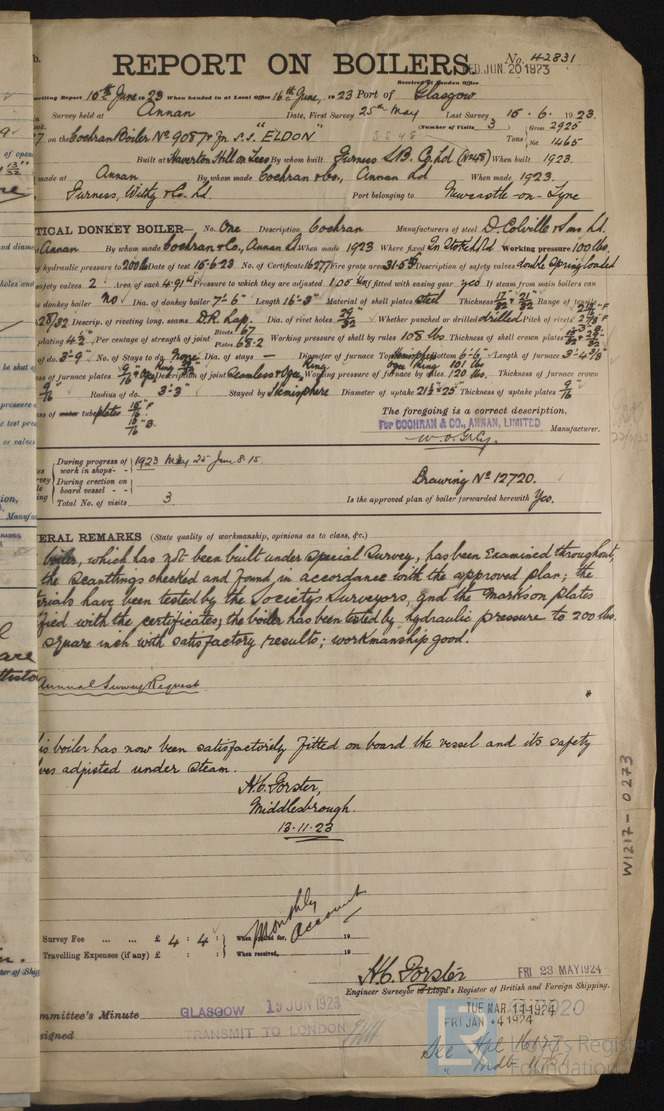 REPORT ON BOILERS.
No. 42831
Received at London Office
WED. JUN. 20 1923
writing Report 16th June 1923 When handed in at Local Office 16th June, 1923 Port of Glasgow
Survey held at Annan Date, First Survey 25th May Last Survey 15.6.1923
(Number of Visits 3) Gross 2925
on the Cochran Boiler No 9087 for S.S. "ELDON" Tons Net 1465
Built at Haverton Hill on Tees By whom built Furness S.B. Co. Ld (No 48) When built 1923.
made at Annan By whom made Cochran & Co., Annan Ld When made 1923.
Furness, Withy & Co. Ld. Port belonging to Newcastle-on-Tyne
TICAL DONKEY BOILER— No. One Description Cochran Manufacturers of steel D. Colville & Sons Ld.
Annan By whom made Cochran & Co., Annan Ld When made 1923 Where fixed In Stokehold Working pressure 100 lbs.
by hydraulic pressure to 200 lbs Date of test 15-6-23 No. of Certificate 16277 Fire grate area 31.5 Description of safety valves double spring loaded
safety valves 2 Area of each 4.91 Pressure to which they are adjusted 105 lbs If fitted with easing gear yes If steam from main boilers can
donkey boiler No Dia. of donkey boiler 7'-6" Length 16'-3" Material of shell plates steel Thickness Range of
25/32 Descrip. of riveting long. seams D.R. Lap. Dia. of rivet holes 29/32 Whether punched or drilled drilled Pitch of rivets
plating 4½ Per centage of strength of joint Rivets 67 Plates 68.2 Working pressure of shell by rules 108 lbs Thickness of shell crown plates
of do. 3'-9" No. of Stays to do. None Dia. of stays — Diameter of furnace Top Hemisphere Bottom 6'-6" Length of furnace 3'-4⅞"
of furnace plates Description of joint Seamless & Ogee Ring Working pressure of furnace by rules 120 lbs. Thickness of furnace crown
9/16" Radius of do. 3'-3" Stayed by Hemisphere Diameter of uptake 21½" × 25" Thickness of uptake plates 9/16"
tube plates 15/16" F 15/16" B.
The foregoing is a correct description,
For COCHRAN & CO., ANNAN, LIMITED
Manufacturer.
During progress of work in shops - - 1923 May 25 Jun 8-15.
During erection on board vessel - - -
Total No. of visits 3
Drawing No 12720.
Is the approved plan of boiler forwarded herewith Yes.
ERAL REMARKS (State quality of workmanship, opinions as to class, &c.)
boiler, which has not been built under Special Survey, has been Examined throughout,
the Scantlings checked and found in accordance with the approved plan; the
rials have been tested by the Society's Surveyors, and the marks on plates
fied with the certificates; the boiler has been tested by hydraulic pressure to 200 lbs.
square inch with satisfactory results; workmanship good.
Annual Survey Request
is boiler has now been satisfactorily fitted on board the vessel and its safety
ves adjusted under steam.
H.C. Forster,
Middlesbrough.
13-11-23
W1217-0273
Monthly Account
Survey Fee ... ... £ 4 : 4 : When applied for, 19
Travelling Expenses (if any) £ : : When received, 19
H.C. Forster
Engineer Surveyor to Lloyd's Register of British and Foreign Shipping.
FRI. 23 MAY 1924
mmittee's Minute GLASGOW 19 JUN 1923
TUE MAR 11 1924
FRI JAN 4 1924
signed TRANSMIT TO LONDON
See
Lloyd's Register
Foundation